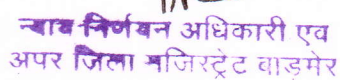 न्याय निर्णयन अधिकारी एव
अपर जिला मजिस्ट्रेट वाड़मेर